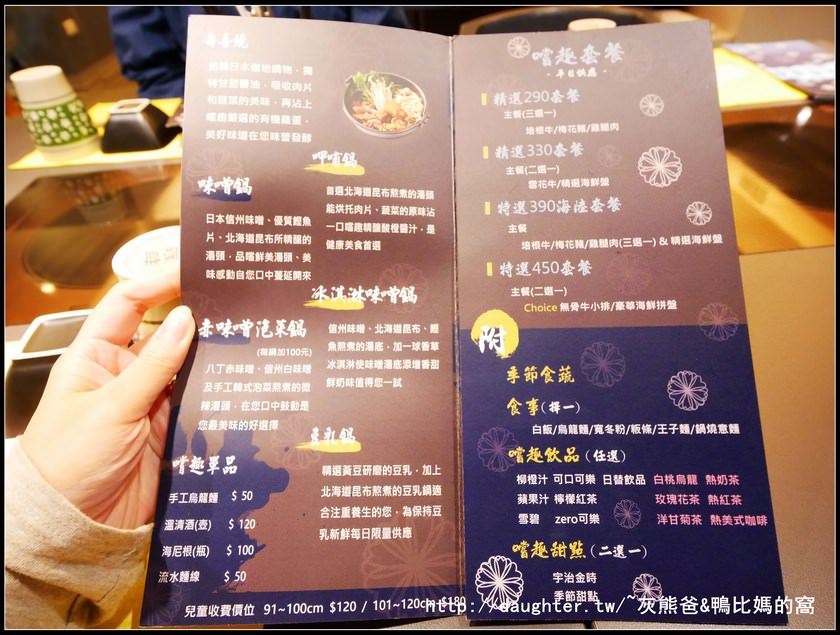 壽喜燒
鍋物，獨
特甘甜醬油，吸收肉片
和蔬菜的美味，再沾上
嚐趣嚴選的有機雞蛋，
美好味道在您味蕾發酵
呷哺鍋
首選北海道昆布熬煮的湯頭
能烘托肉片、蔬菜的原味沾
一口嚐趣精釀酸橙醬汁，是
健康美食首選
味噌鍋
日本信州味噌、優質鰹魚
片、北海道昆布所精釀的
湯頭，品嚐鮮美湯頭、美
味感動自您口中蔓延開來
冰淇淋味噌鍋
信州味噌、北海道昆布、鰹
魚熬煮的湯底，加一球香草
冰淇淋使味噌湯底添增香甜
鮮奶味值得您一試
赤味噌泡菜鍋
(每鍋加100元)
八丁赤味噌、信州白味噌
及手工韓式泡菜熬煮的微
辣湯頭，在您口中鼓動是
您最美味的好選擇
豆乳鍋
精選黃豆研磨的豆乳，加上
北海道昆布熬煮的豆乳鍋適
合注重養生的您，為保持豆
乳新鮮每日限量供應
嚐趣單品
手工烏龍麵 $ 50
溫清酒(壺) $ 120
海尼根(瓶) $ 100
流水麵線 $ 50
兒童收費價位 91~100cm $120 / 101~120cm $180
嚐趣套餐
- 平日供應 -
精選290套餐
主餐(三選一)
培根牛/梅花豬/雞腿肉
精選330套餐
主餐(二選一)
雪花牛/精選海鮮盤
特選390海陸套餐
主餐
培根牛/梅花豬/雞腿肉(三選一) & 精選海鮮盤
特選450套餐
主餐(二選一)
Choice 無骨牛小排/豪華海鮮拼盤
附
季節食蔬
食事(擇一)
白飯/烏龍麵/寬冬粉/粄條/王子麵/鍋燒意麵
嚐趣飲品(任選)
柳橙汁 可口可樂 日替飲品 白桃烏龍 熱奶茶
蘋果汁 檸檬紅茶 玫瑰花茶 熱紅茶
雪碧 zero可樂 洋甘菊茶 熱美式咖啡
嚐趣甜點(二選一)
宇治金時
季節甜點
http://daughter.tw/~灰熊爸&鴨比媽的窩